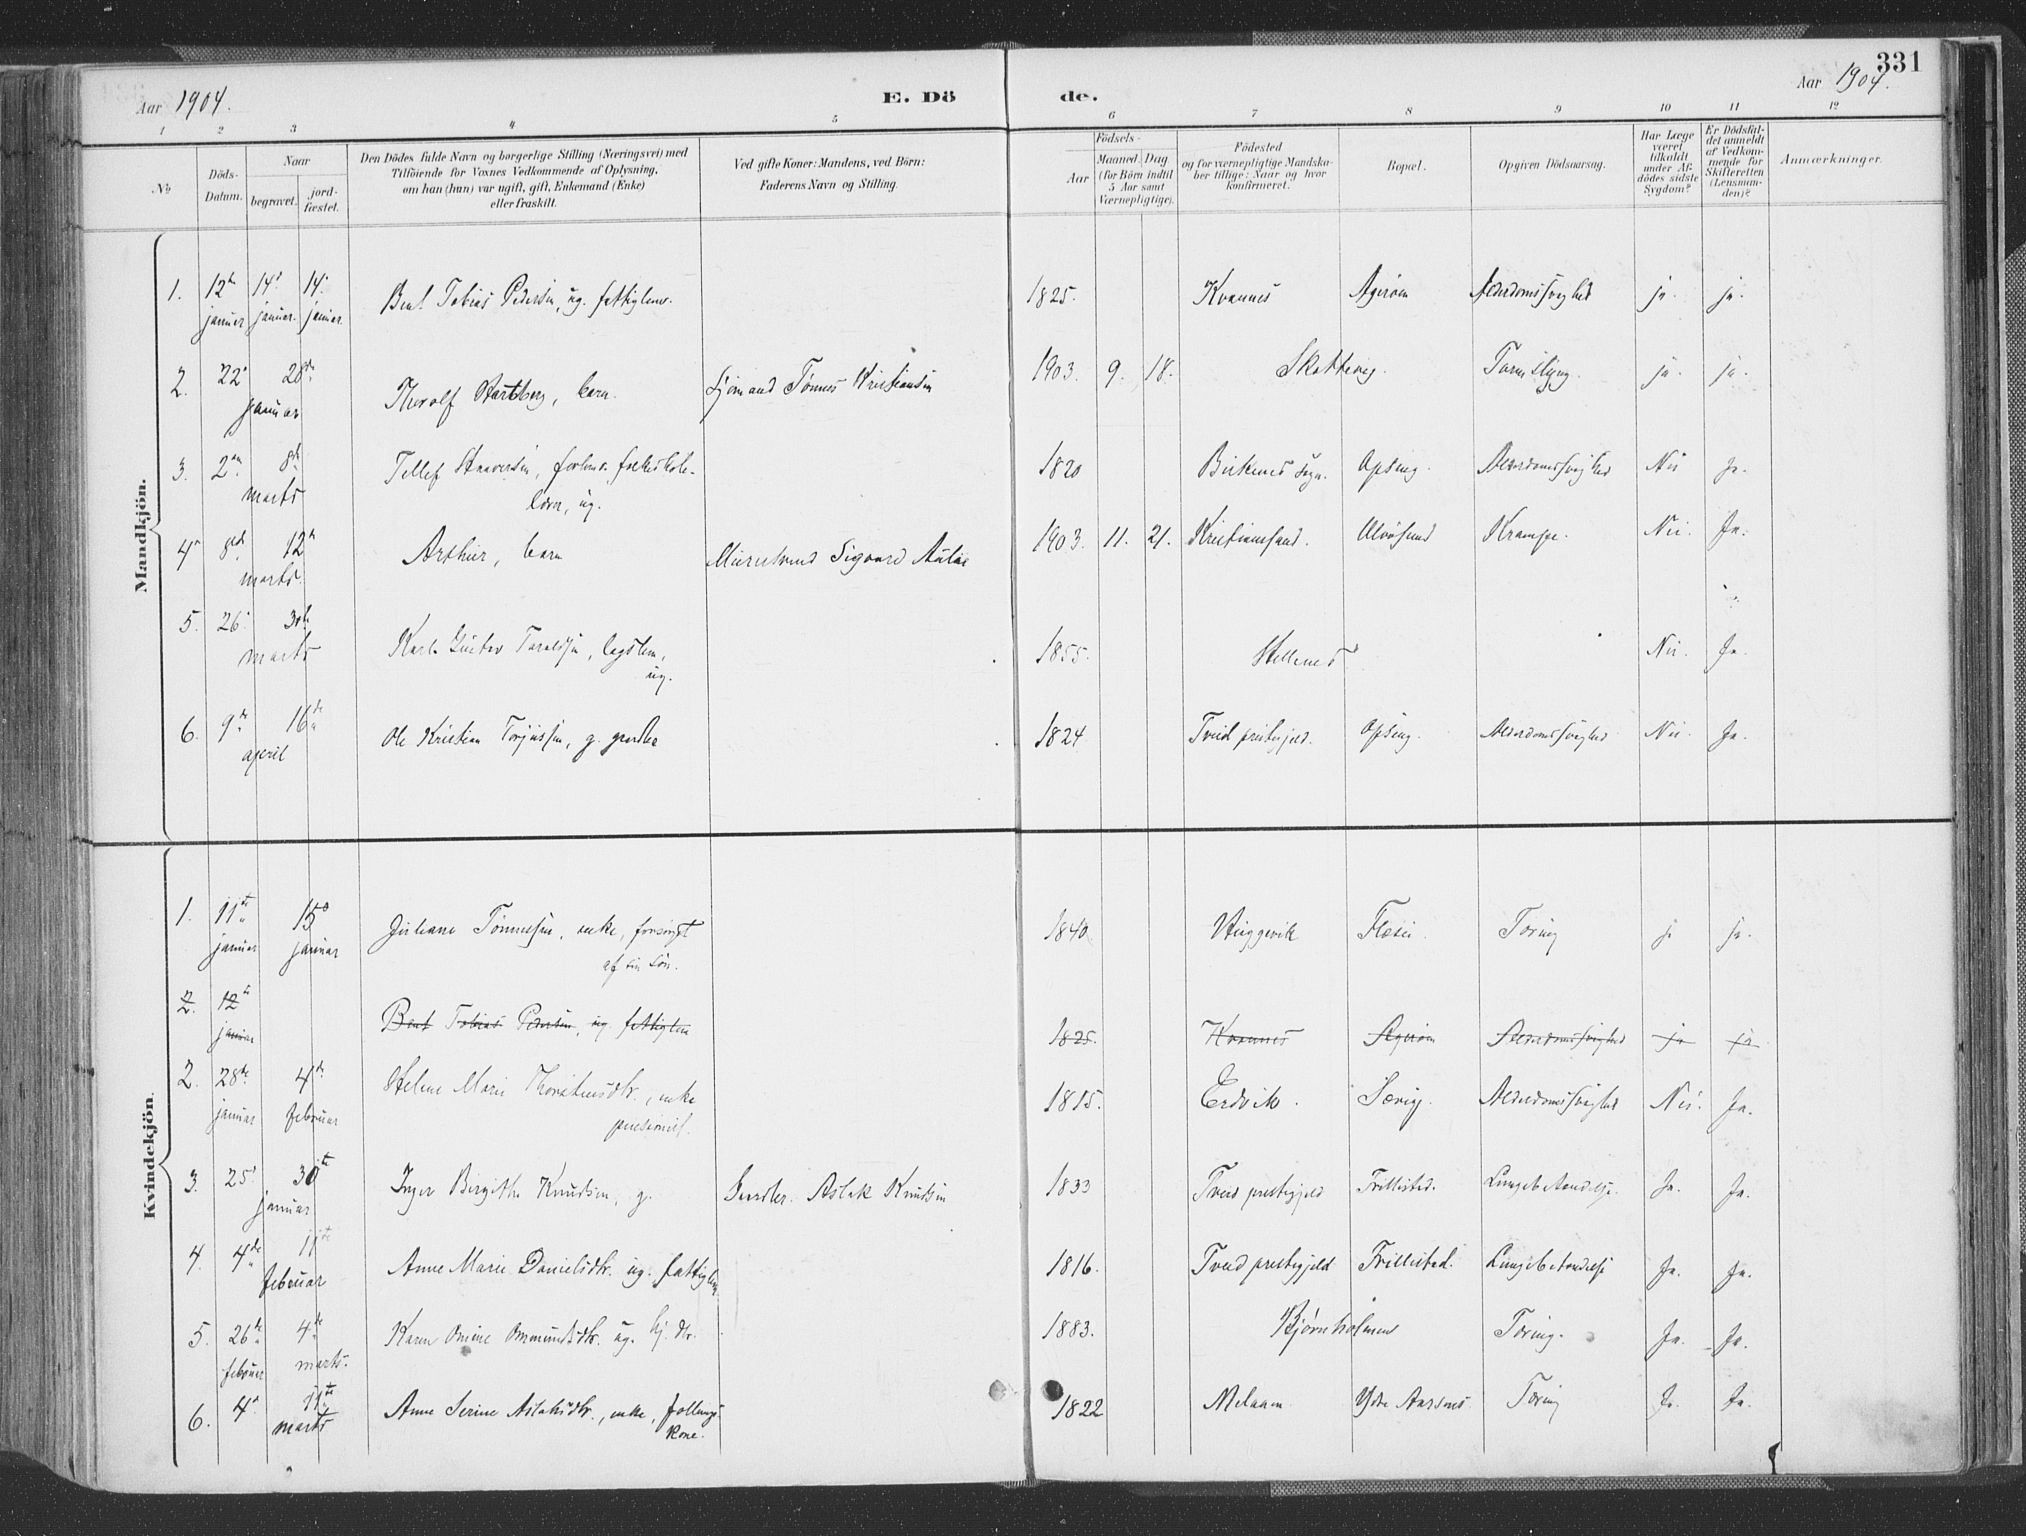 331
Aar 1904.
E. Dö
de.
Aar 1904.
1 2 3 4 5 6 7 8 9 10 11 12
No
Döds-
Datum.
Naar
begravet.
jord-
fæstet.
Den Dödes fulde Navn og borgerlige Stilling (Næringsvei) med
Tilföiende for Voxnes Vedkommende af Oplysning,
om han (hun) var ugift, gift, Enkemand (Enke)
eller fraskilt.
Ved gifte Koner: Mandens, ved Börn:
Faderens Navn og Stilling.
Födsels-
Aar
Maaned. Dag
(for Börn indtil
5 Aar samt
Værnepligtige).
Födested
og for værnepligtige Mandska-
ber tillige: Naar og hvor
konfirmeret.
Bopæl.
Opgiven Dödsaarsag.
Har Læge
været
tilkaldt
under Af-
dödes sidste
Sygdom?
Er Dödsfal-
det anmeldt
af Vedkom-
mende for
Skifteretten
(Lensman-
den)?
Anmærkninger.
Mandkjön.
1. 12te januar 14' januar. 14. januar. Bent Tobias Pedersen, ug. fattiglem. 1825. Kvannes Agerøen Alderdomssvaghed ja. ja.
2. 22' 28de januar Thorolf Startberg, barn. Sjømand Tønnes Kristiansen 1903. 9. 18. Skottevig. Tarmslyng. ja. ja.
3. 2en 8de marts Tellef Knaversen, forhenv. folkeskole-
lærer, ug. 1820 Birkenes sogn. Opsung. Alderdomssvaghed Nei Ja.
4. 8de 12te marts Arthur, barn Murestrand Sigvard Aulie 1903. 11. 21. Kristianssand. Ulvøsund Krampe. Nei. Ja.
5. 26. 30te marts Karl Gustav Taraldsen, lægslem,
ug. 1855. Hellenes Nei. Ja.
6. 9de 16de april Ole Kristian Torjussen, g. gaardbr. 1824 Tveid prestegjeld. Opsung. Alderdomssvaghed Nei. Ja.
Kvindekjön.
1. 11te januar 15de januar Juliane Tønnessen, enke, forsørget
af sin søn. 1840. Høggevik Flesen. Tæring ja ja.
2. 12te januar Bent Tobias Pedersen, ug. fattiglem 1825. Kvannes Agerøen Alderdomssvaghed ja ja
2. 28de januar 4de februar Helene Marie Thorstensdtr., enke
pensionist. 1815. Erdvik. Særvig. Alderdomssvaghed Nei. Ja.
3. 25' 30te januar Inger Birgithe Knudsen, g. Gaardbr. Aslak Knutsen 1833 Tveid prestegjeld Frillestad. Lungebetændelse. Ja. Ja.
4. 4de 11te februar Anne Marie Danielsdtr. ug. fattiglem. 1816. Tveid prestegjeld Frillestad. Lungebetændelse Ja. Ja.
5. 26de februar 4de marts. Karen Omine Ommundsdtr. ug. hj. dtr. 1883. Bjørnholmen Tæring. Ja. Ja.
6. 4de 11te marts Anne Serine Aslaksdtr., enke, follaugs-
kone. 1822 Melaaen. Ydre Aassnes Tæring Ja. Ja.